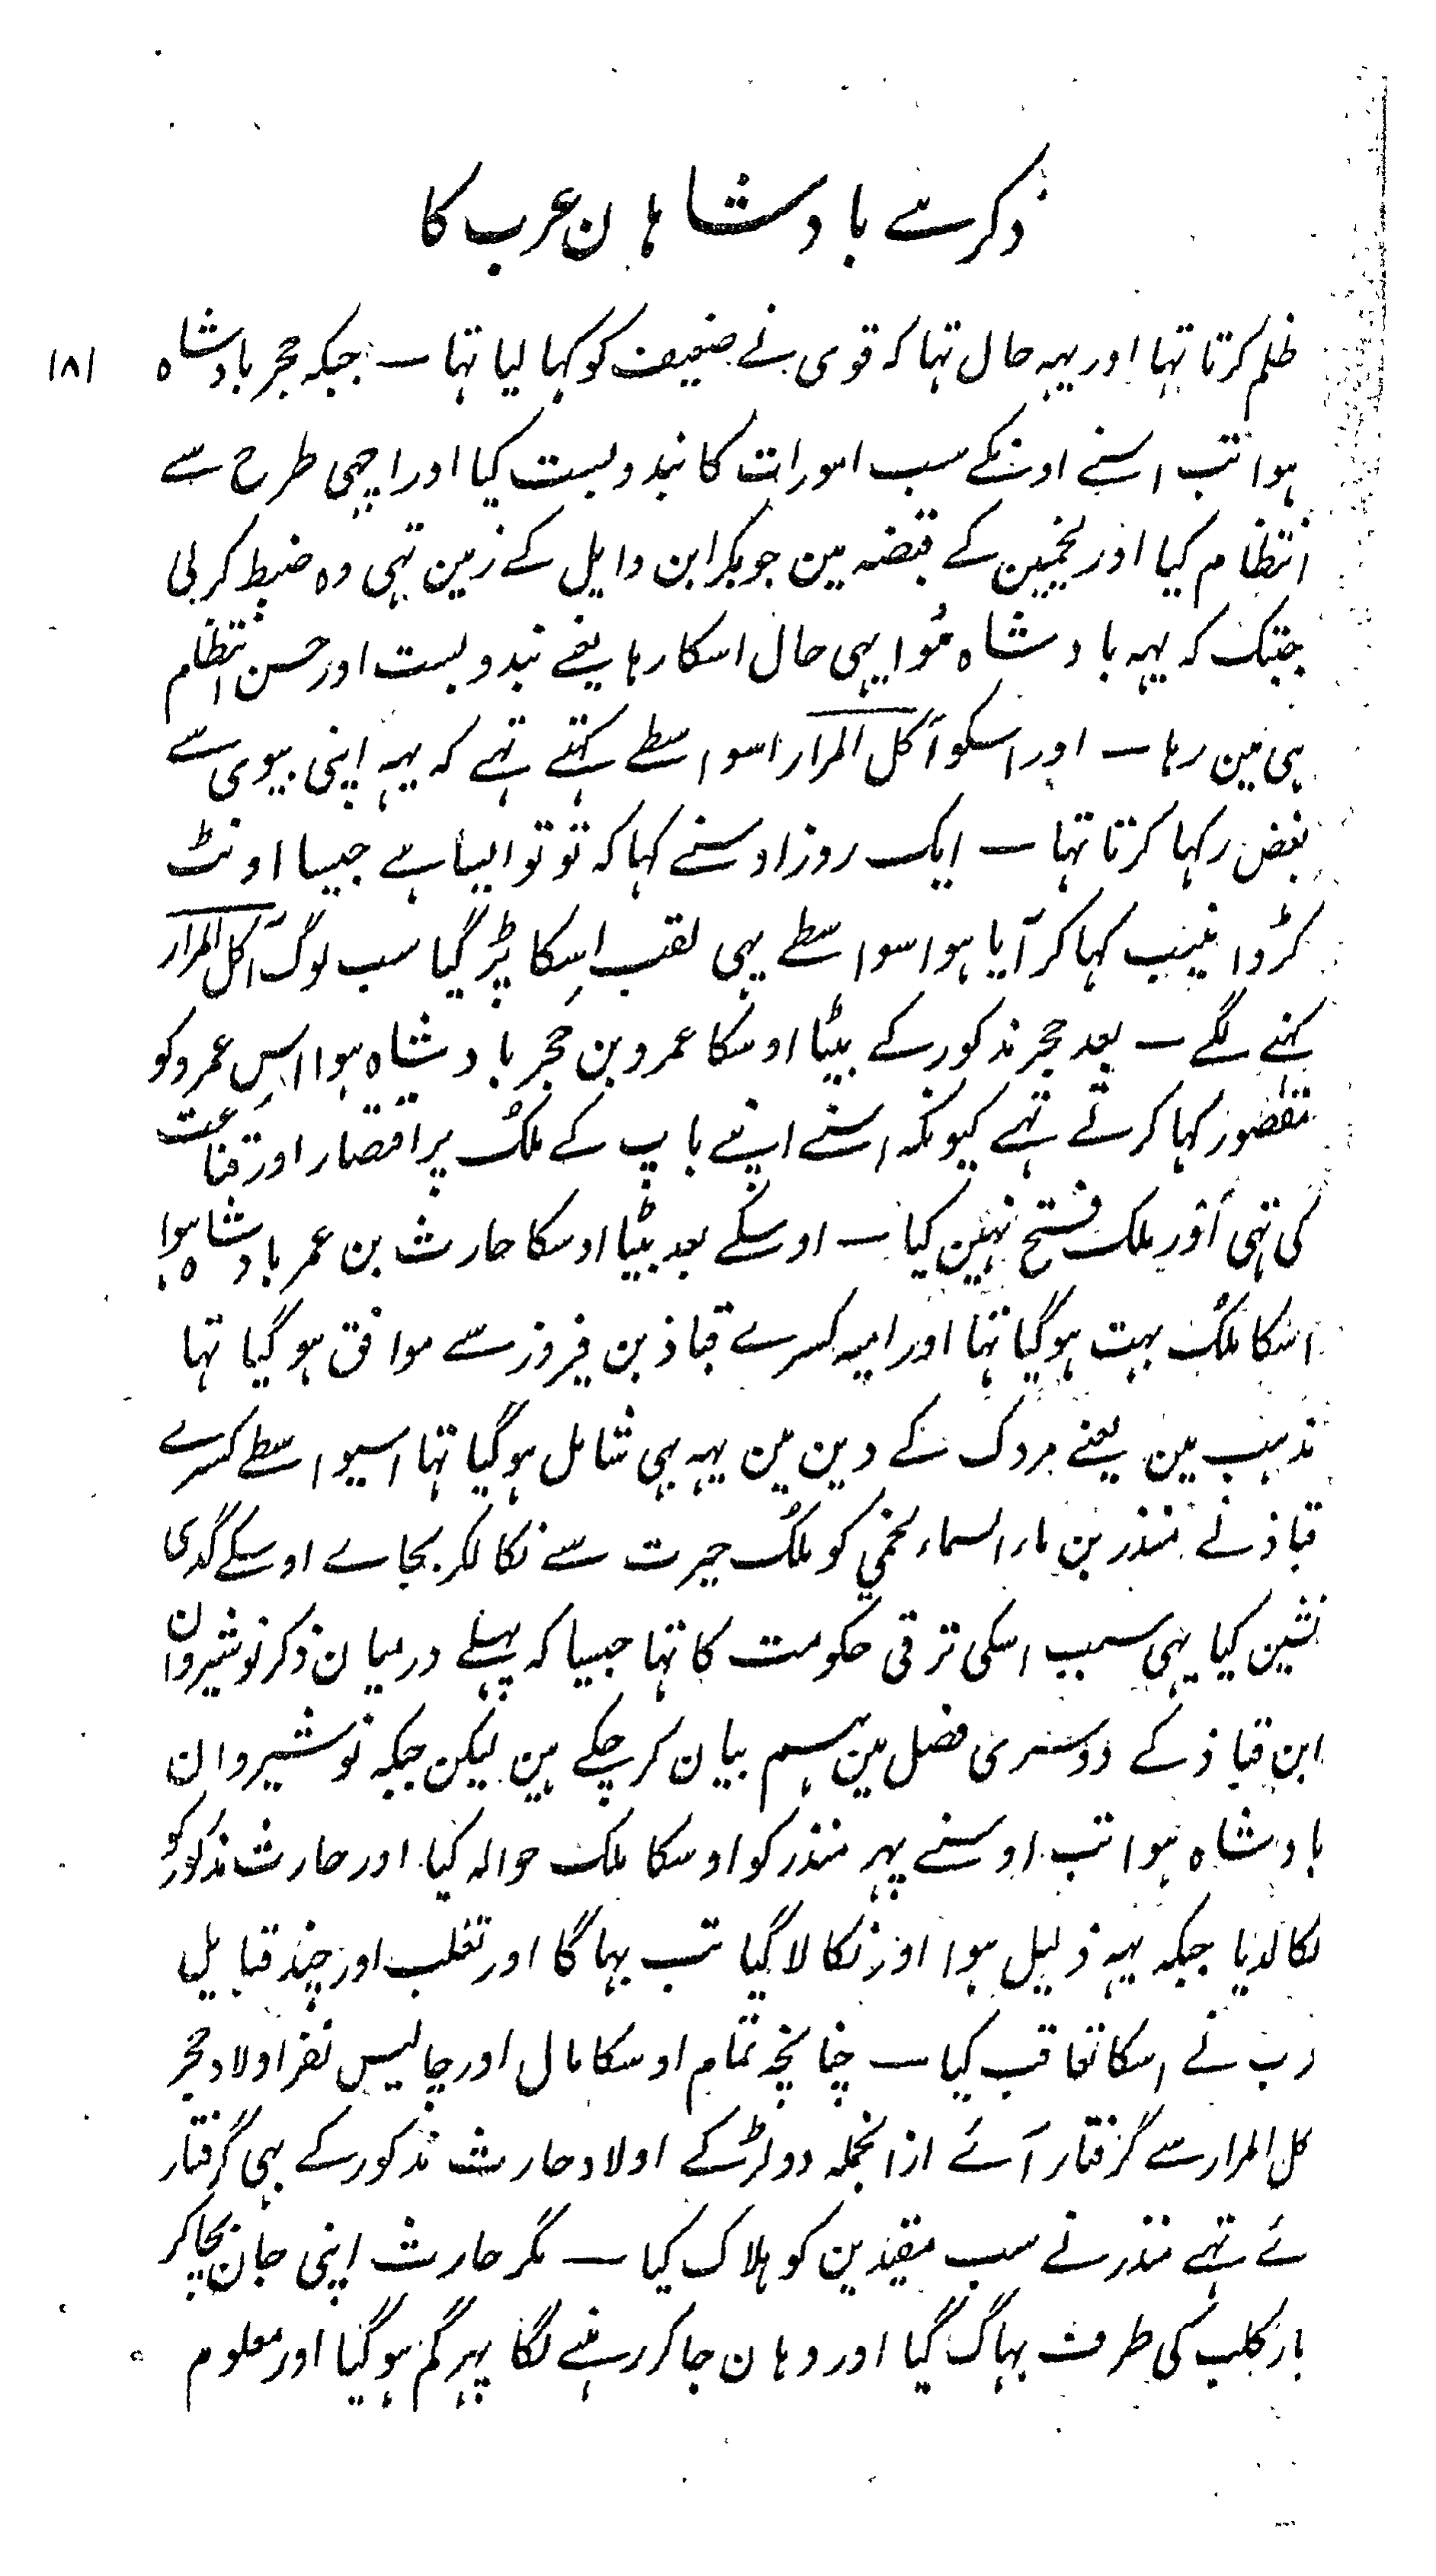 ذکر سے بادشاہان عرب کا
۱۸۱
ظلم کرتا تہا اور یہہ حال تہا کہ قوی نے ضعیف کو کہا لیا تہا — جبکہ حجر بادشاہ
ہوا تب اسنے اونکے سب امورات کا بندوبست کیا اور اچہی طرح سے
انتظام کیا اور لخمیین کے قبضہ مین جو بکر ابن وایل کے زمین تہی وہ ضبط کر لی
جبتک کہ یہہ بادشاہ مُوا یہی حال اسکا رہا یعنے بندوبست اور حسن انتظام
ہی مین رہا — اور اسکو آکل المرار اسواسطے کہتے تہے کہ یہہ اپنی بیوی سے
بغض رکہا کرتا تہا — ایک روز اوسنے کہا کہ تو تو ایسا ہے جیسا اونٹ
کڑوا نیب کہا کر آیا ہو اسواسطے یہی لقب اسکا پڑ گیا سب لوگ آکل المرار
کہنے لگے — بعد حجر مذکور کے بیٹا اوسکا عمرو بن حجر بادشاہ ہوا اس عمرو کو
مقصور کہا کرتے تہے کیونکہ اسنے اپنے باپ کے ملک پر اقتصار اور قناعت
کی تہی اَور ملک فتح نہین کیا — اوسکے بعد بیٹا اوسکا حارث بن عمر بادشاہ ہوا
اسکا ملک بہت ہو گیا تہا اور یہہ کسرے قباذ بن فیروز سے موافق ہو گیا تہا
مذہب مین یعنے مزدک کے دین مین یہہ بہی شامل ہو گیا تہا اسیواسطے کسرے
قباذ نے منذر بن ماء السماء لخمی کو ملک حیرت سے نکالکر بجاے اوسکے گدی
نشین کیا یہی سبب اسکی ترقی حکومت کا تہا جیسا کہ پہلے درمیان ذکر نوشیروان
ابن قباذ کے دوسری فصل مین ہم بیان کر چکے ہین لیکن جبکہ نوشیروان
بادشاہ ہوا تب اوسنے پہر منذر کو اوسکا ملک حوالہ کیا اور حارث مذکور کو
نکالدیا جبکہ یہہ ذلیل ہوا اور نکالا گیا تب بہاگا اور تغلب اور چند قبایل
رب نے اسکا تعاقب کیا — چنانچہ تمام اوسکا مال اور چالیس نفر اولاد حجر
کل المرار سے گرفتار آئے ازانجملہ دو لڑکے اولاد حارث مذکور کے بہی گرفتار
ئے تہے منذر نے سب مقیدین کو ہلاک کیا — مگر حارث اپنی جان بچا کر
یار کلب کی طرف بہاگ گیا اور وہان جا کر رہنے لگا پہر گم ہو گیا اور معلوم